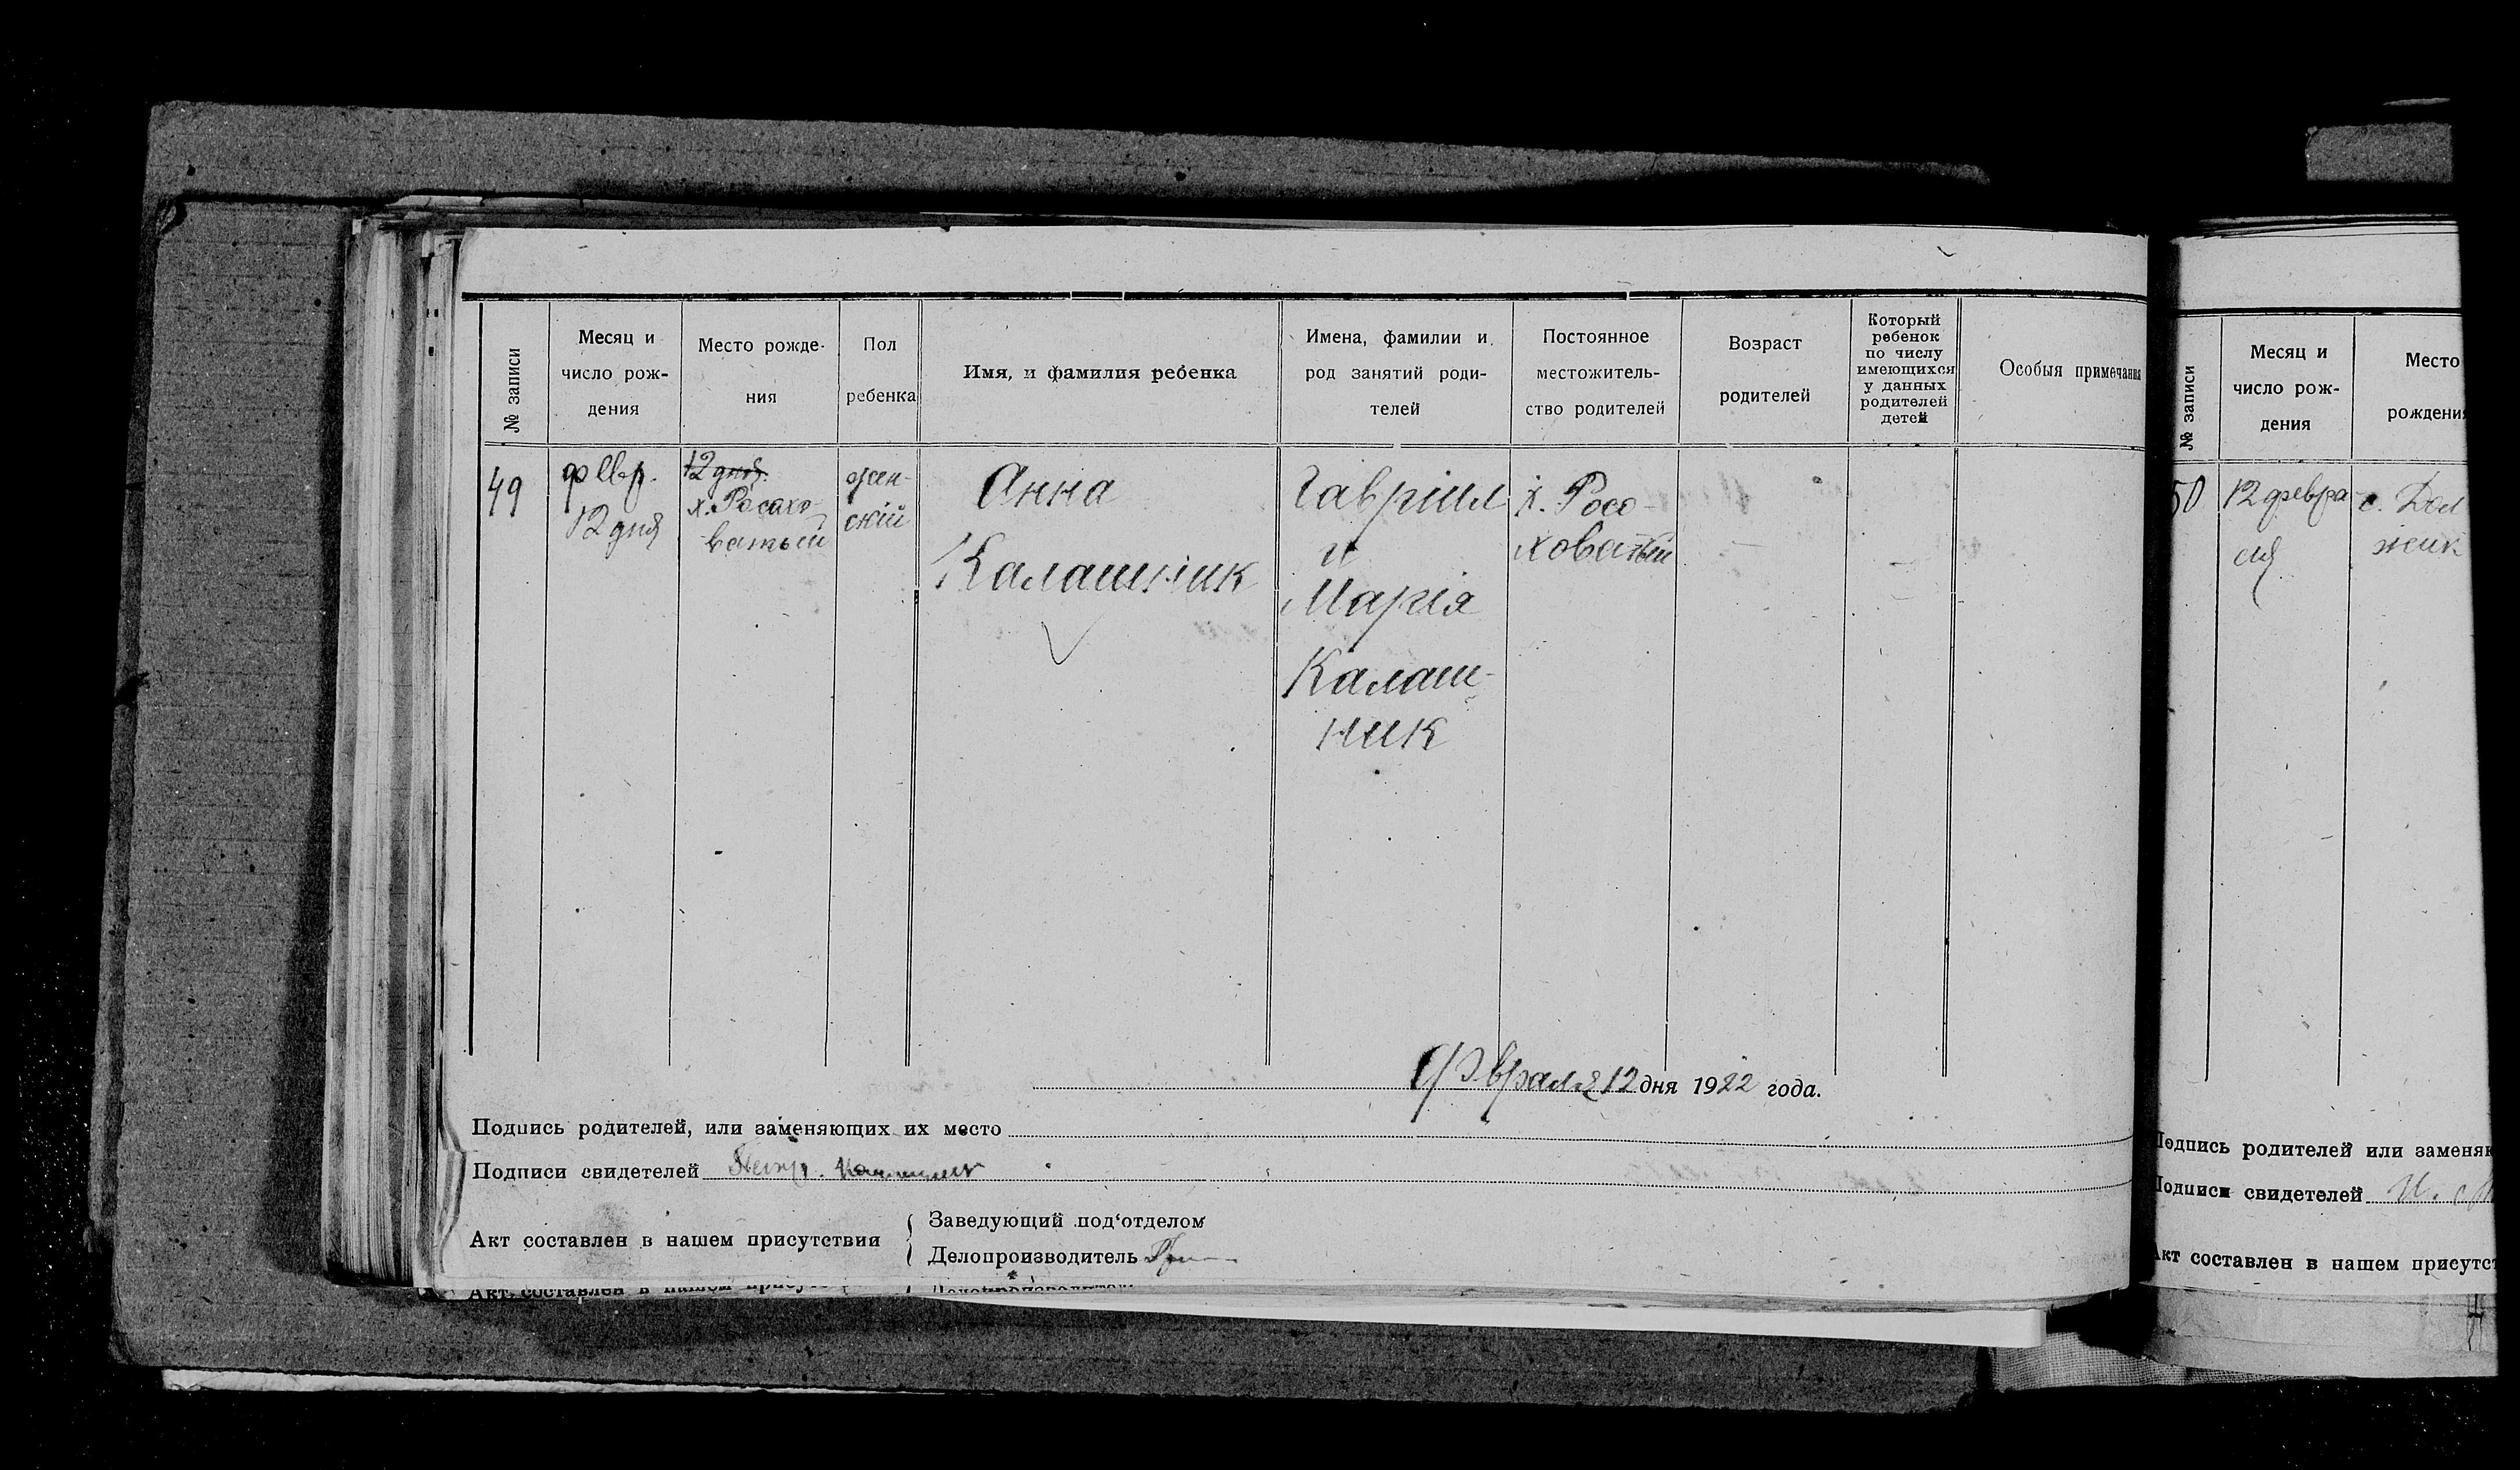 № записи
Месяц и
число рож-
дения
Место рожде-
ния
Пол
ребенка
Имя, и фамилия ребенка
Имена, фамилии и
род занятий роди-
телей
Постоянное
местожитель-
ство родителей
Возраст
родителей
Который
ребенок
по числу
имеющихся
у данных
родителей
детей
Особыя примечания
49
февр.
12 дня
12 дня.
х. Росохо-
ватый
жен-
скій
Анна
Калашник
Гавріил
и
Марія
Калаш-
ник
х. Росо-
ховатый
Февраля 12 дня 1922 года.
Подпись родителей, или заменяющих их место
Подписи свидетелей Петр.
Акт составлен в нашем присутствии
Заведующий под'отделом
Делопроизводитель
Акт составлен в нашем присут
Делопроизводитель
№ записи
Месяц и
число рож-
дения
Место
рождения
50
12 февра-
ля
с. Дол
жик
Подпись родителей или заменяю
Подписи свидетелей И.
Акт составлен в нашем присутст